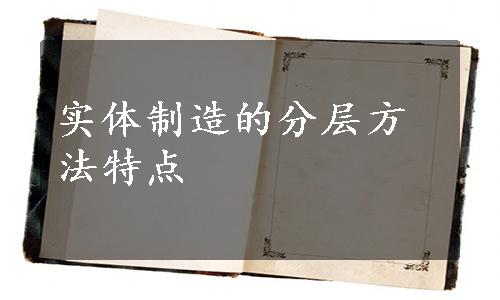 实体制造的分层方
法特点